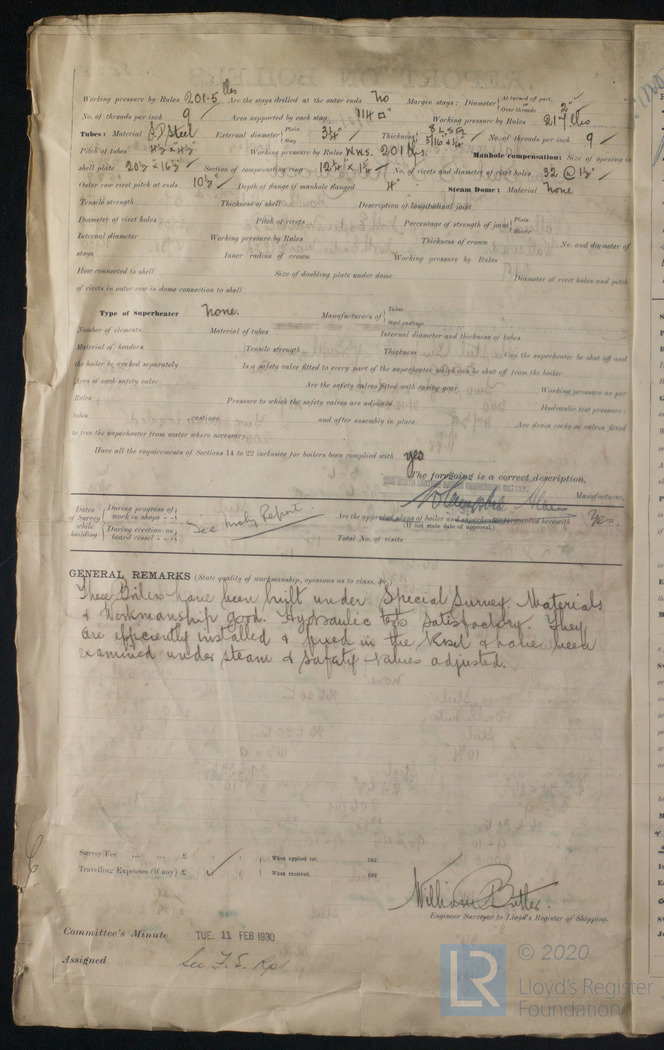 Working pressure by Rules 201.5 lbs Are the stays drilled at the outer ends No Margin stays: Diameter { At turned off part, or Over threads 2"
No. of threads per inch 9 Area supported by each stay 114 □" Working pressure by Rules 217 lbs
Tubes: Material Steel External diameter { Plain Stay 3¼" Thickness { 8 L.S.G. 5/16 & ¼" No. of threads per inch 9
Pitch of tubes 4½" x 4½" Working pressure by Rules 201 lbs. Manhole compensation: Size of opening in
shell plate 20½ x 16½" Section of compensating ring No. of rivets and diameter of rivet holes 32 @ 1½"
Outer row rivet pitch at ends 10½" Depth of flange if manhole flanged 4" Steam Dome: Material None
Tensile strength Thickness of shell Description of longitudinal joint
Diameter of rivet holes Pitch of rivets Percentage of strength of joint { Plate Rivets
Internal diameter Working pressure by Rules Thickness of crown No. and diameter of
stays Inner radius of crown Working pressure by Rules
How connected to shell Size of doubling plate under dome Diameter of rivet holes and pitch
of rivets in outer row in dome connection to shell
Type of Superheater None. Manufacturers of { Tubes Steel castings
Number of elements Material of tubes Internal diameter and thickness of tubes
Material of headers Tensile strength Thickness Can the superheater be shut off and
the boiler be worked separately Is a safety valve fitted to every part of the superheater which can be shut off from the boiler
Area of each safety valve Are the safety valves fitted with easing gear Working pressure as per
Rules Pressure to which the safety valves are adjusted Hydraulic test pressure:
tubes castings and after assembly in place Are drain cocks or valves fitted
to free the superheater from water where necessary
Have all the requirements of Sections 14 to 22 inclusive for boilers been complied with yes
The foregoing is a correct description,
Manufacturer.
Dates of Survey while building { During progress of work in shops - - During erection on board vessel - - See Mchy Report. Are the approved plans of boiler and superheater forwarded herewith Yes.
(If not state date of approval.)
Total No. of visits
GENERAL REMARKS (State quality of workmanship, opinions as to class, &c.)
These Boilers have been built under Special Survey. Materials
& Workmanship good. Hydraulic tests satisfactory. They
are efficiently installed & fixed in the Vessel & have been
examined under steam & safety valves adjusted.
Survey Fee ... ... £ : : When applied for, 192
Travelling Expenses (if any) £ : : When received, 192
William Butler.
Engineer Surveyor to Lloyd's Register of Shipping.
Committee's Minute TUE. 11 FEB 1930
Assigned See F. E. Rpt
LR © 2020
Lloyd's Register
Foundation